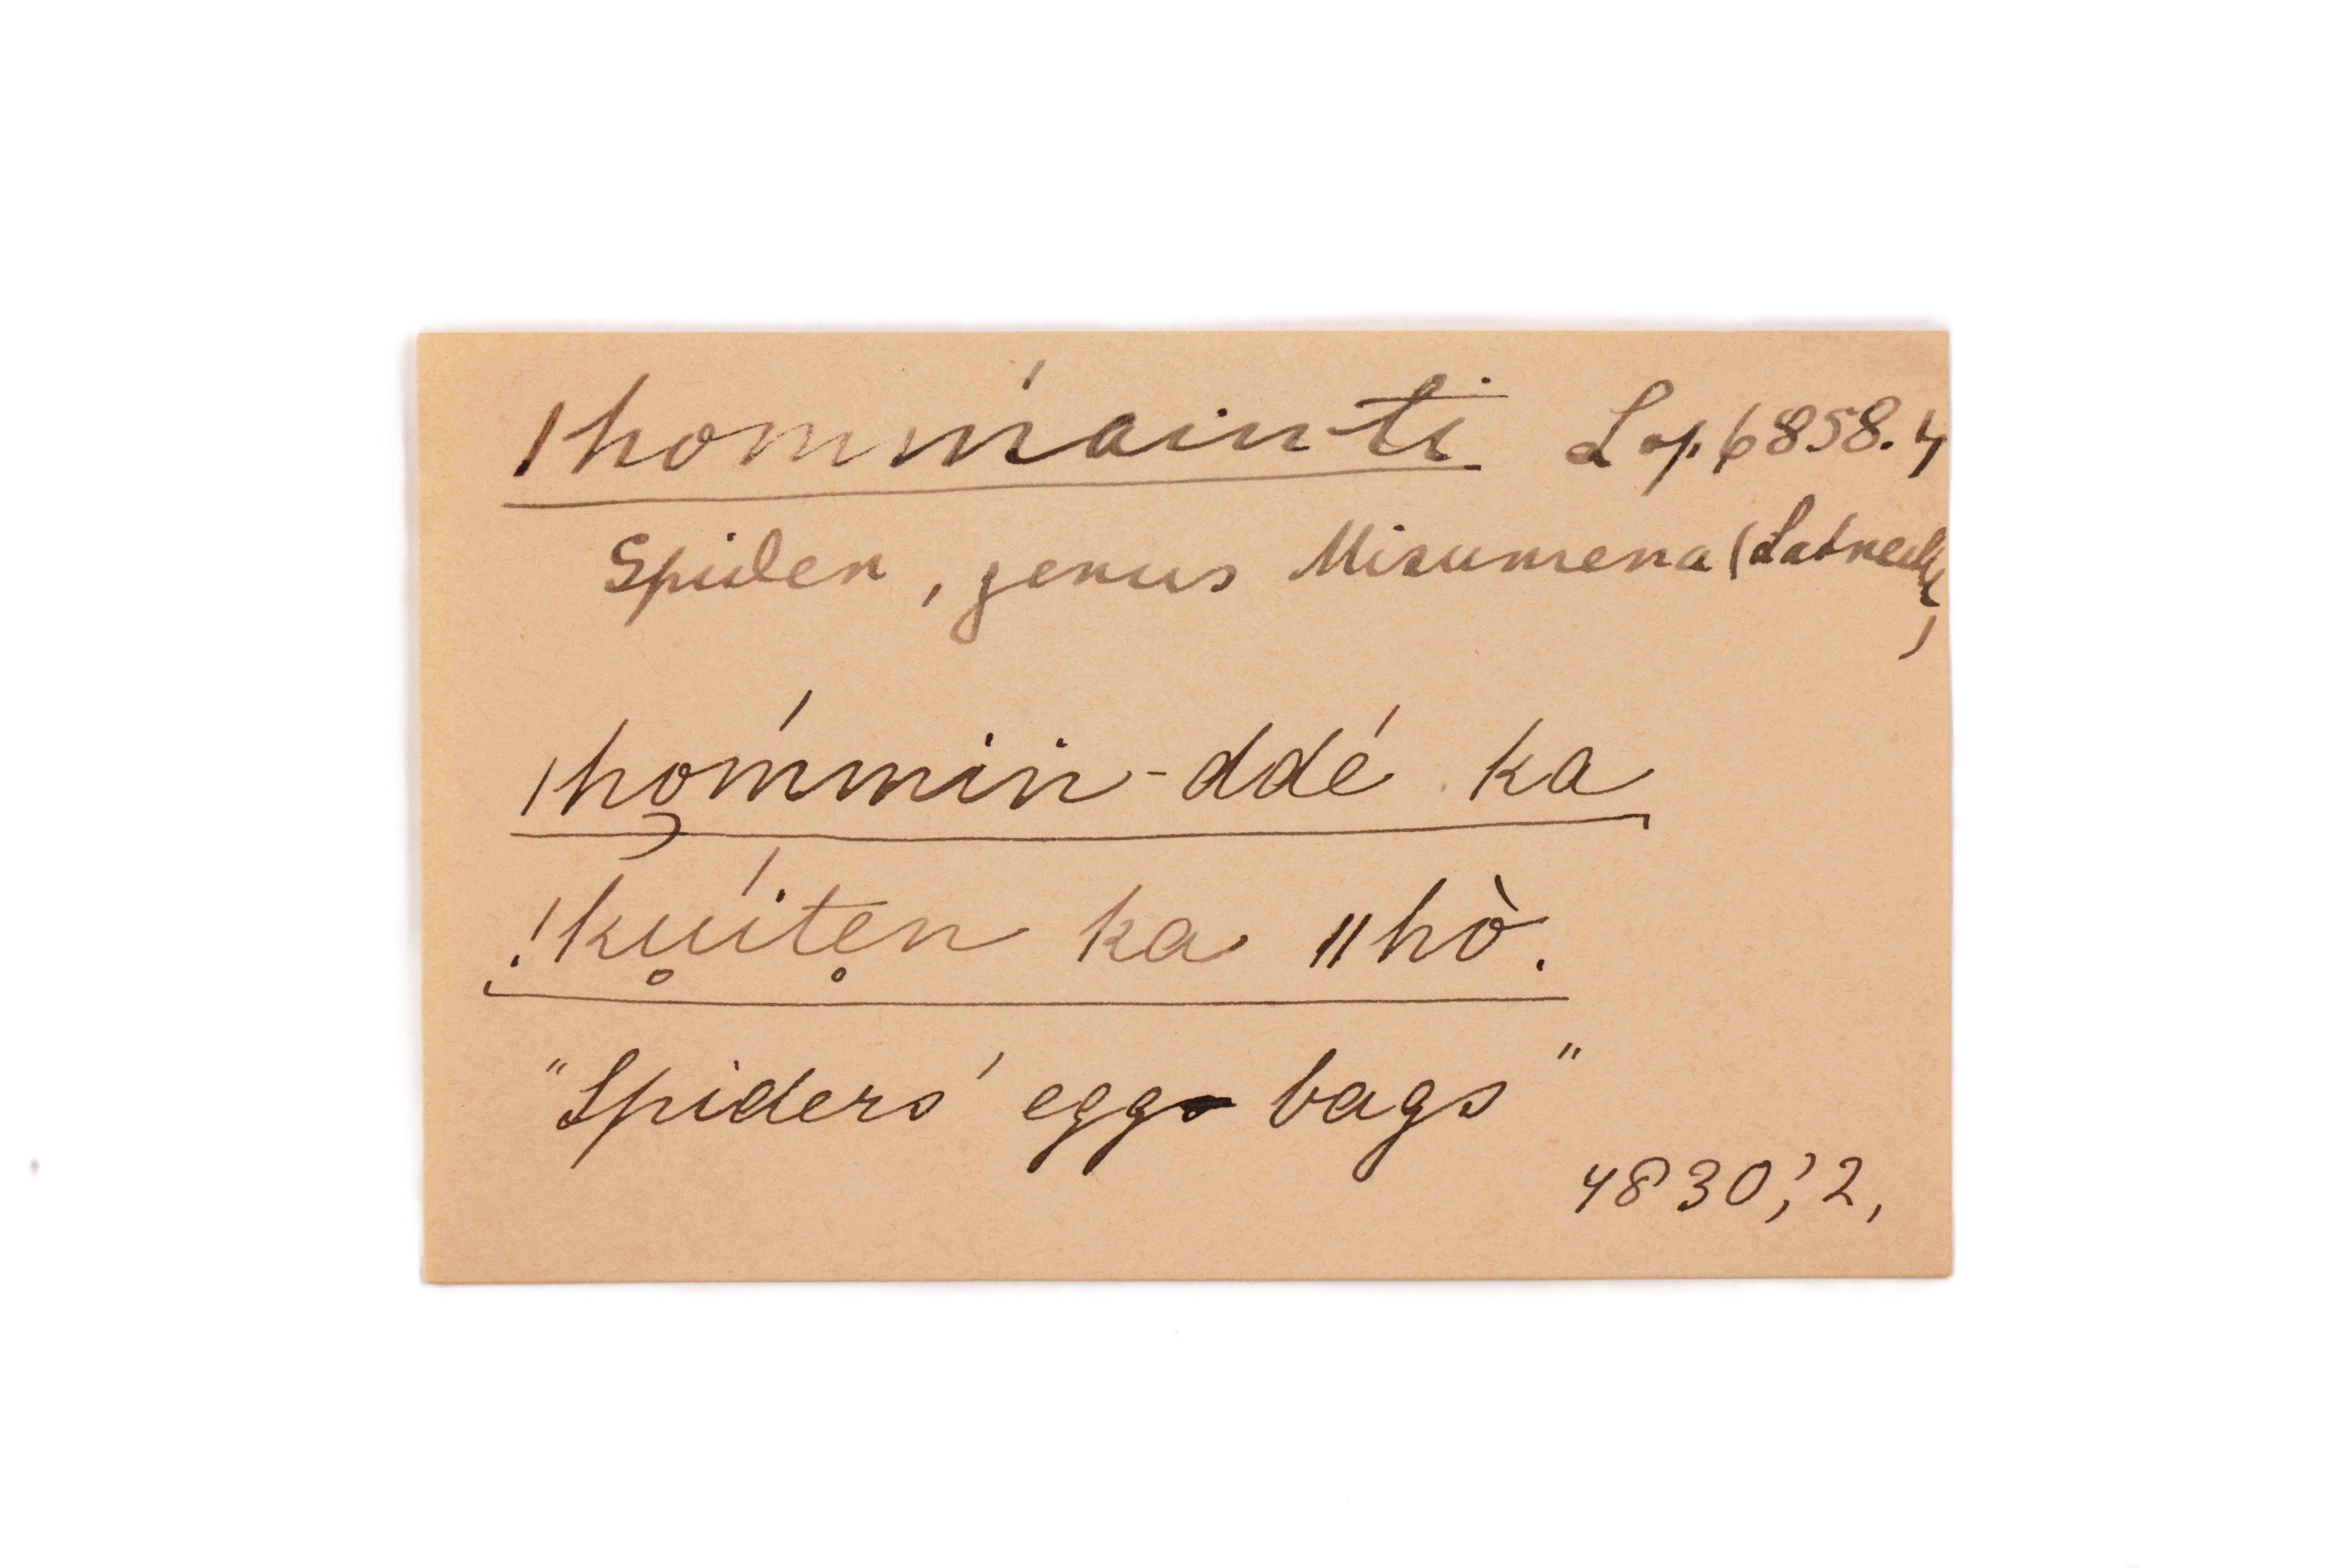 ǀhommáin-ti L op. 6858.4
Spider, genus Misumena (Latreille)
ǀho̧mmín-ddé ka
!kú̥ite̥n ka ǁhò.
"Spiders' egg bags"
4830,'2,